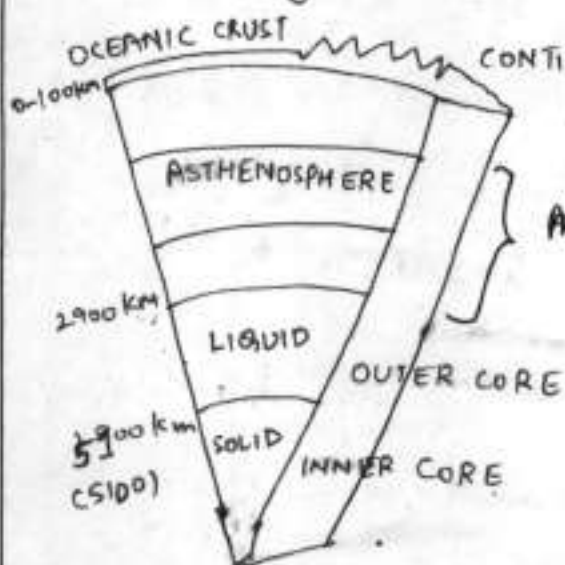 OCEANIC CRUST
CONTI
0-100km
ASTHENOSPHERE
A
2900 KM
LIQUID
OUTER CORE
5900 km
SOLID
(5100)
INNER CORE